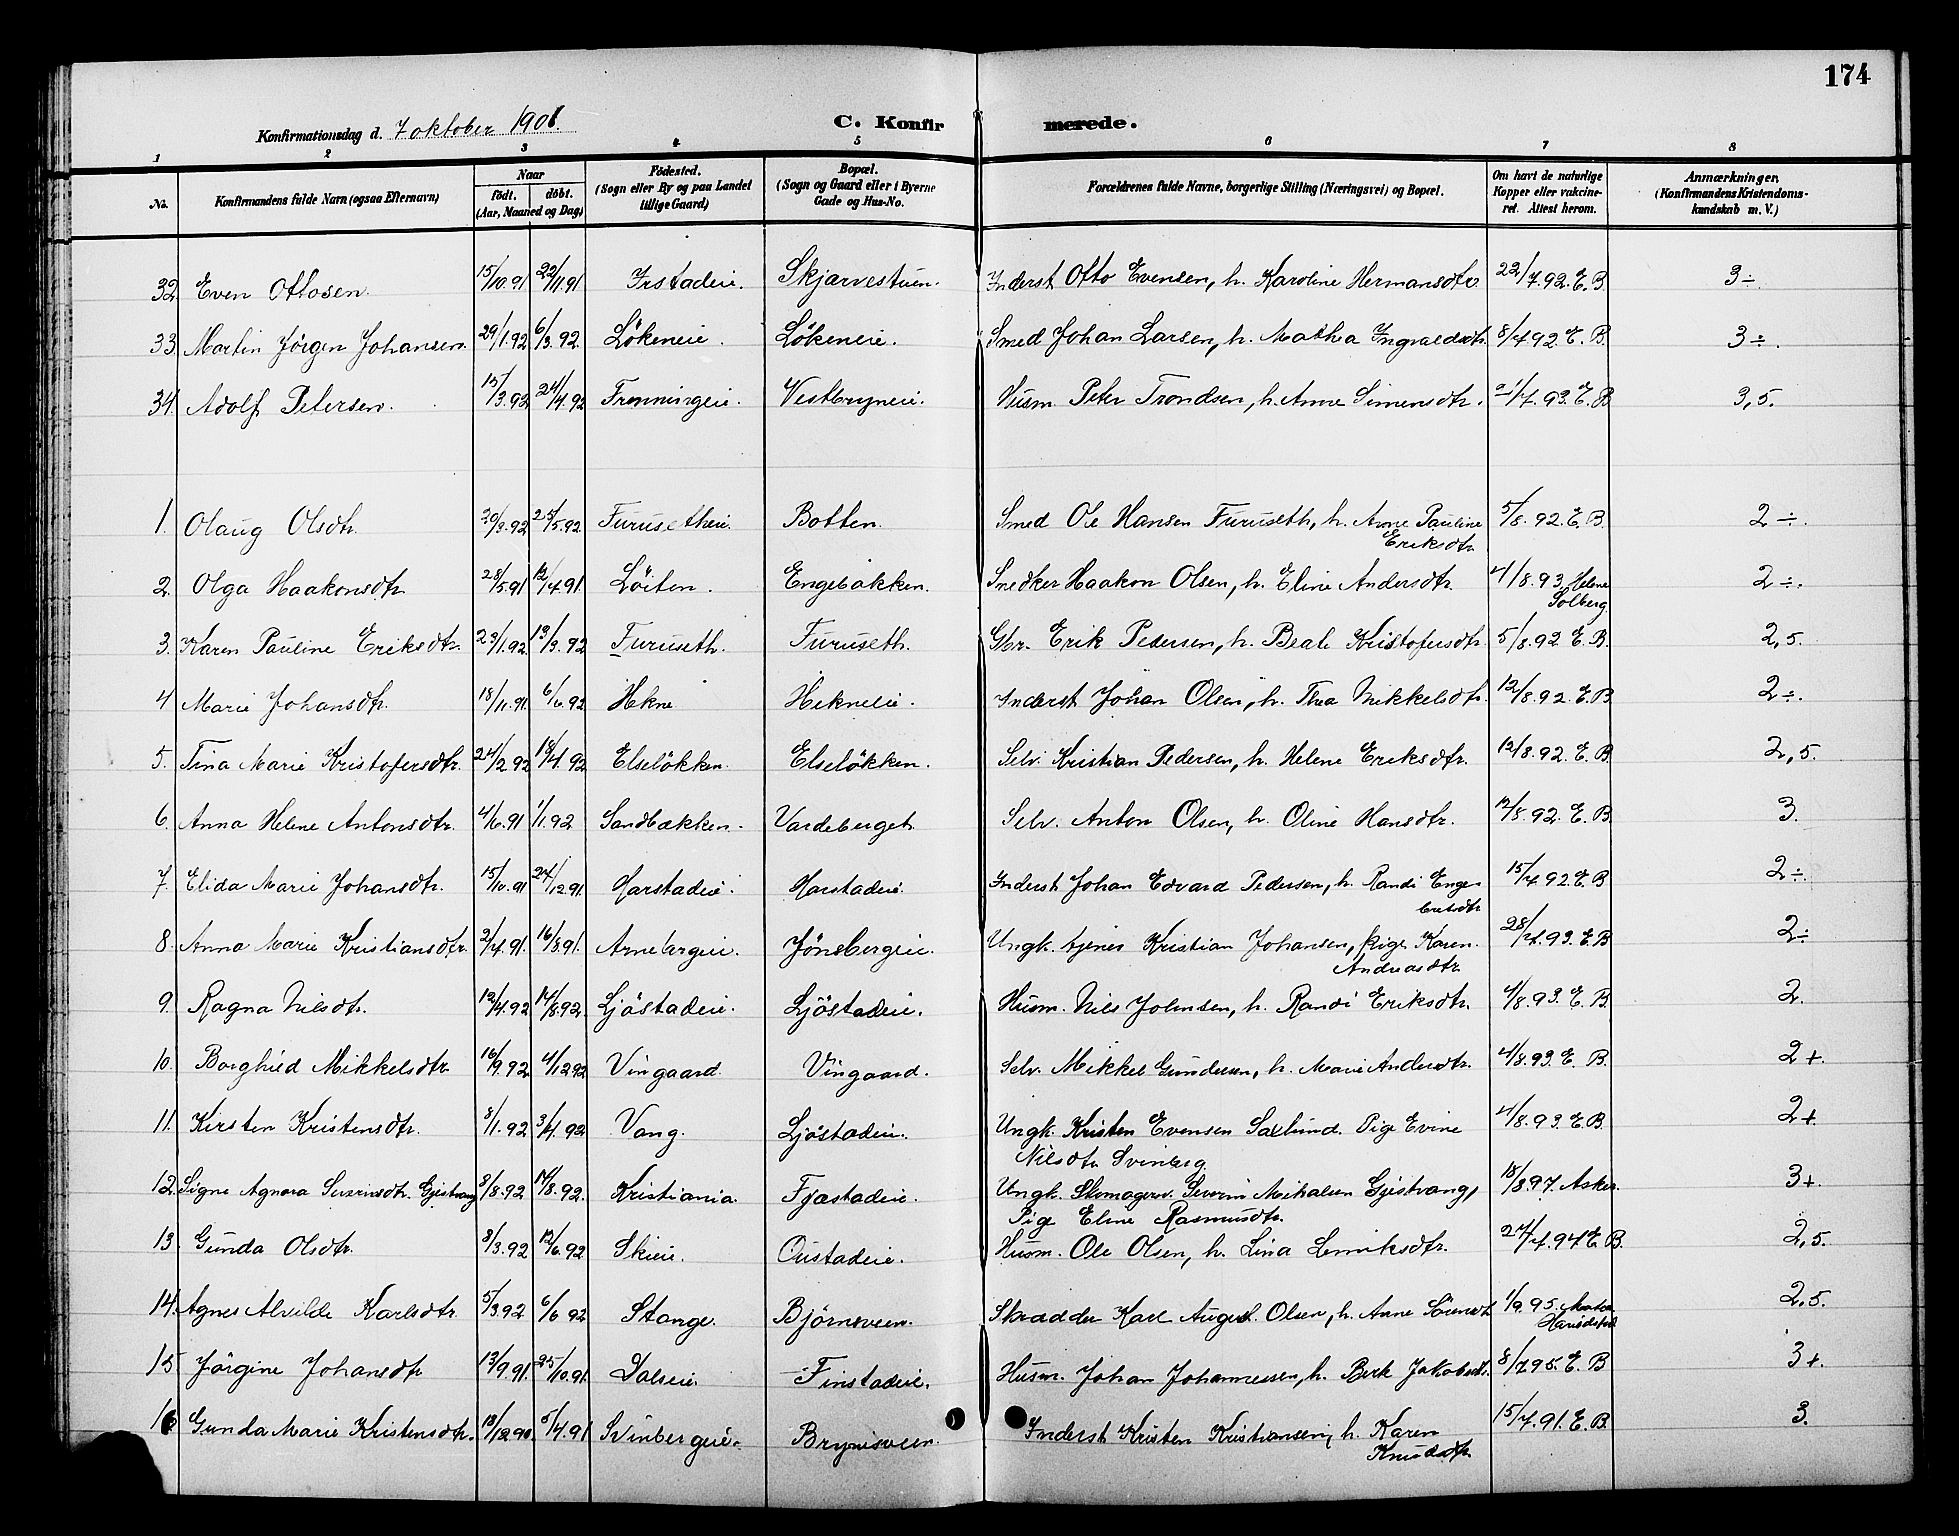 174
Konfirmationsdag d. 7 oktober 1906. C. Konfirmerede.
1 2 3 4 5 6 7 8
No. Konfirmandens fulde Navn (ogsaa Efternavn) Naar født. døbt. (Aar, Maaned og Dag) Fødested. (Sogn eller By og paa Landet tillige Gaard) Bopæl. (Sogn og Gaard eller i Byerne Gade og Hus-No. Forældrenes fulde Navne, borgerlige Stilling (Næringsvei) og Bopæl. Om havt de naturlige Kopper eller vakcineret. Attest herom. Anmærkninger, (Konfirmandens Kristendomskundskab m. V.)
32. Even Ottosen. 15/10.91 22/11.91 Irstadeie. Skjærvestuen. Inderst Otto Evensen, h. Karoline Hermansdtr. 22/7.92. E. B. 3÷.
33. Martin Jörgen Johansen. 29/1.92 6/3.92 Lökeneie. Lökeneie. Smed Johan Larsen, h. Mathea Ingvaldsdtr. 8/4.92. E. B. 3÷.
34. Adolf Petersen. 15/3.92 24/4.92 Frenningeie. Vestbryneie. Husm. Peter Trondsen, h. Anne Simensdtr. /7.93. E. B 3,5.
1. Olaug Olsdtr. 20/3.92 25/5.92 Furusetheie. Botten. Smed Ole Hansen Furuseth, h. Anne Pauline
Eriksdtr. 5/8.92. E. B. 2÷.
2. Olga Haakonsdtr. 28/5.91 12/4.91. Löiten. Engebakken. Snedker Haakon Olsen, h. Eline Andersdtr. 4/8.93. Helene
Solberg. 2÷.
3. Karen Pauline Eriksdtr. 23/1.92 13/3.92 Furuseth. Furuseth. Gbr. Erik Pedersen, h. Beate Kristofersdtr. 5/8.92 E. B. 2,5.
4 Marie Johansdtr. 18/11.91 6/6.92 Hekne Hekneeie. Inderst Johan Olsen, h. Thea Mikkelsdtr. 12/8.92. E. B 2÷.
5. Tina Marie Kristofersdtr. 24/2.92 18/4.92 Elselökken. Elselökken. Selv. Kristian Pedersen, h. Helene Eriksdtr. 12/8.92. E. B 2,5.
6. Anna Helene Antonsdtr. 4/6.91 1/1.92 Sandbækken. Vardeberget. Selv. Anton Olsen, h. Oline Hansdtr. 12/8.92. E. B 3.
7. Elida Marie Johansdtr. 15/10.91 24/12.91. Harstadeie. Harstadeie. Inderst Johan Edvard Pedersen, h. Randi Enge-
bretsdtr 15/7.92. E. B 2÷.
8. Anna Marie Kristiansdtr. 2/4.91. 16/8.91. Arnebergeie. Jönsbergeie. Ungk. tjener Kristian Johansen, pige Karen
Andreasdtr. 28/4.93. E. B 2÷
9. Ragna Nilsdtr. 12/4.92 14/8.92. Ljöstadeie. Ljöstadeie. Husm. Nils Johnsen, h. Randi Eriksdtr. 4/8.93. E. B. 2.
10. Borghild Mikkelsdtr. 16/9.92 4/12.92 Vingaard. Vingaard. Selv. Mikkel Gundersen, h. Marie Andersdtr. 4/8.93. E. B. 2+.
11. Kirsten Kristensdtr. 8/1.92 3/4.92 Vang. Ljöstadeie. Ungk. Kristen Evensen Saxlund. Pige Evine
Nilsdtr. Svinberg. 4/8.93. E. B. 2+.
12. Signe Agnora Severinsdtr. Gjestvang 8/8.92 14/8.92. Kristiania. Fjæstadeie. Ungk. Skomagersv. Severin Mikalsen Gjestvang,
Pige Eline Rasmusdtr. 18/8.97. Asker. 3+.
13. Gunda Olsdtr. 8/3.92 12/6.92 Skieie. Oustadeie. Husm. Ole Olsen, h. Lina Lemiksdtr. 27/4.94 E. B. 2,5.
14. Agnes Alvilde Karlsdtr. 5/3.92 6/6 92 Stange. Björnsveen. Skrædder Karl August Olsen, h. Anne Sörensdtr. 1/9.95. 2,5.
15 Jörgine Johansdtr 13/9.91. 25/10.91. Dalseie. Finstadeie. Husm. Johan Johannessen, h. Berte Jakobsdtr. 8/7.95. E. B 3+.
16 Gunda Marie Kristensdtr. 18/12.90 5/4.91 Svinbergeie. Brynisveen. Inderst Kristen Kristiansen, h. Karen
Knudsdtr. 15/7.91. E. B. 3.